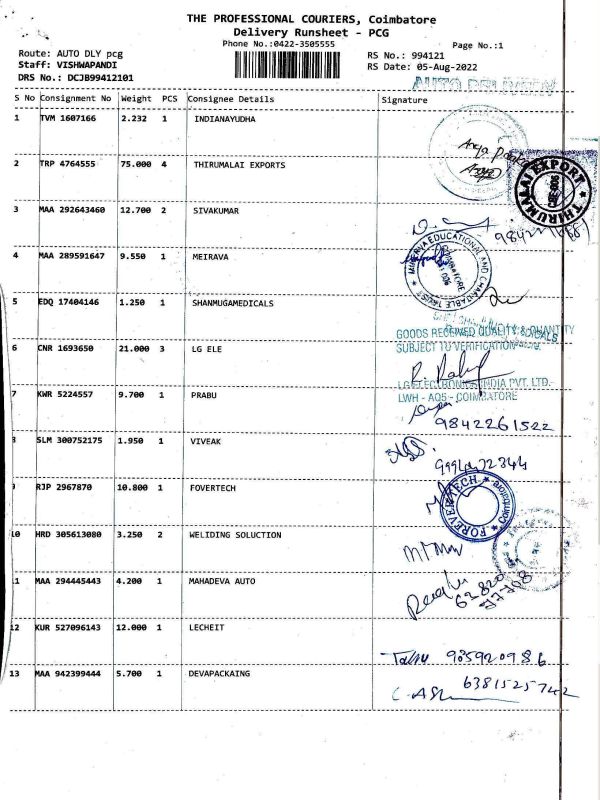 THE PROFESSIONAL COURIERS, Coimbatore
Delivery Runsheet - PCG
Phone No.:0422-3505555
Page No.:1
Route: AUTO DLY pcg
Staff: VISHWAPANDI
DRS No.: DCJB99412101
RS No.: 994121
RS Date: 05-Aug-2022
S No Consignment No Weight PCS Consignee Details Signature
1 TVM 1607166 2.232 1 INDIANAYUDHA
2 TRP 4764555 75.000 4 THIRUMALAI EXPORTS
THIRUMALAI EXPORT
3 MAA 292643460 12.700 2 SIVAKUMAR
4 MAA 289591647 9.550 1 MEIRAVA
MINERVA EDUCATIONAL AND CHARITABLE TRUST
5 EDQ 17404146 1.250 1 SHANMUGAMEDICALS
GOODS RECEIVED QUALITY & QUANTITY
SUBJECT TO VERIFICATION
6 CNR 1693650 21.000 3 LG ELE
LG ELECTRONICS INDIA PVT. LTD.
LWH - AQ5 - COIMBATORE
7 KWR 5224557 9.700 1 PRABU
9842261522
8 SLM 300752175 1.950 1 VIVEAK
9 RJP 2967870 10.800 1 FOVERTECH
FOREVER TECH Coimbatore
10 HRD 305613080 3.250 2 WELIDING SOLUCTION
11 MAA 294445443 4.200 1 MAHADEVA AUTO
12 KUR 527096143 12.000 1 LECHEIT
13 MAA 942399444 5.700 1 DEVAPACKAING
6381525742